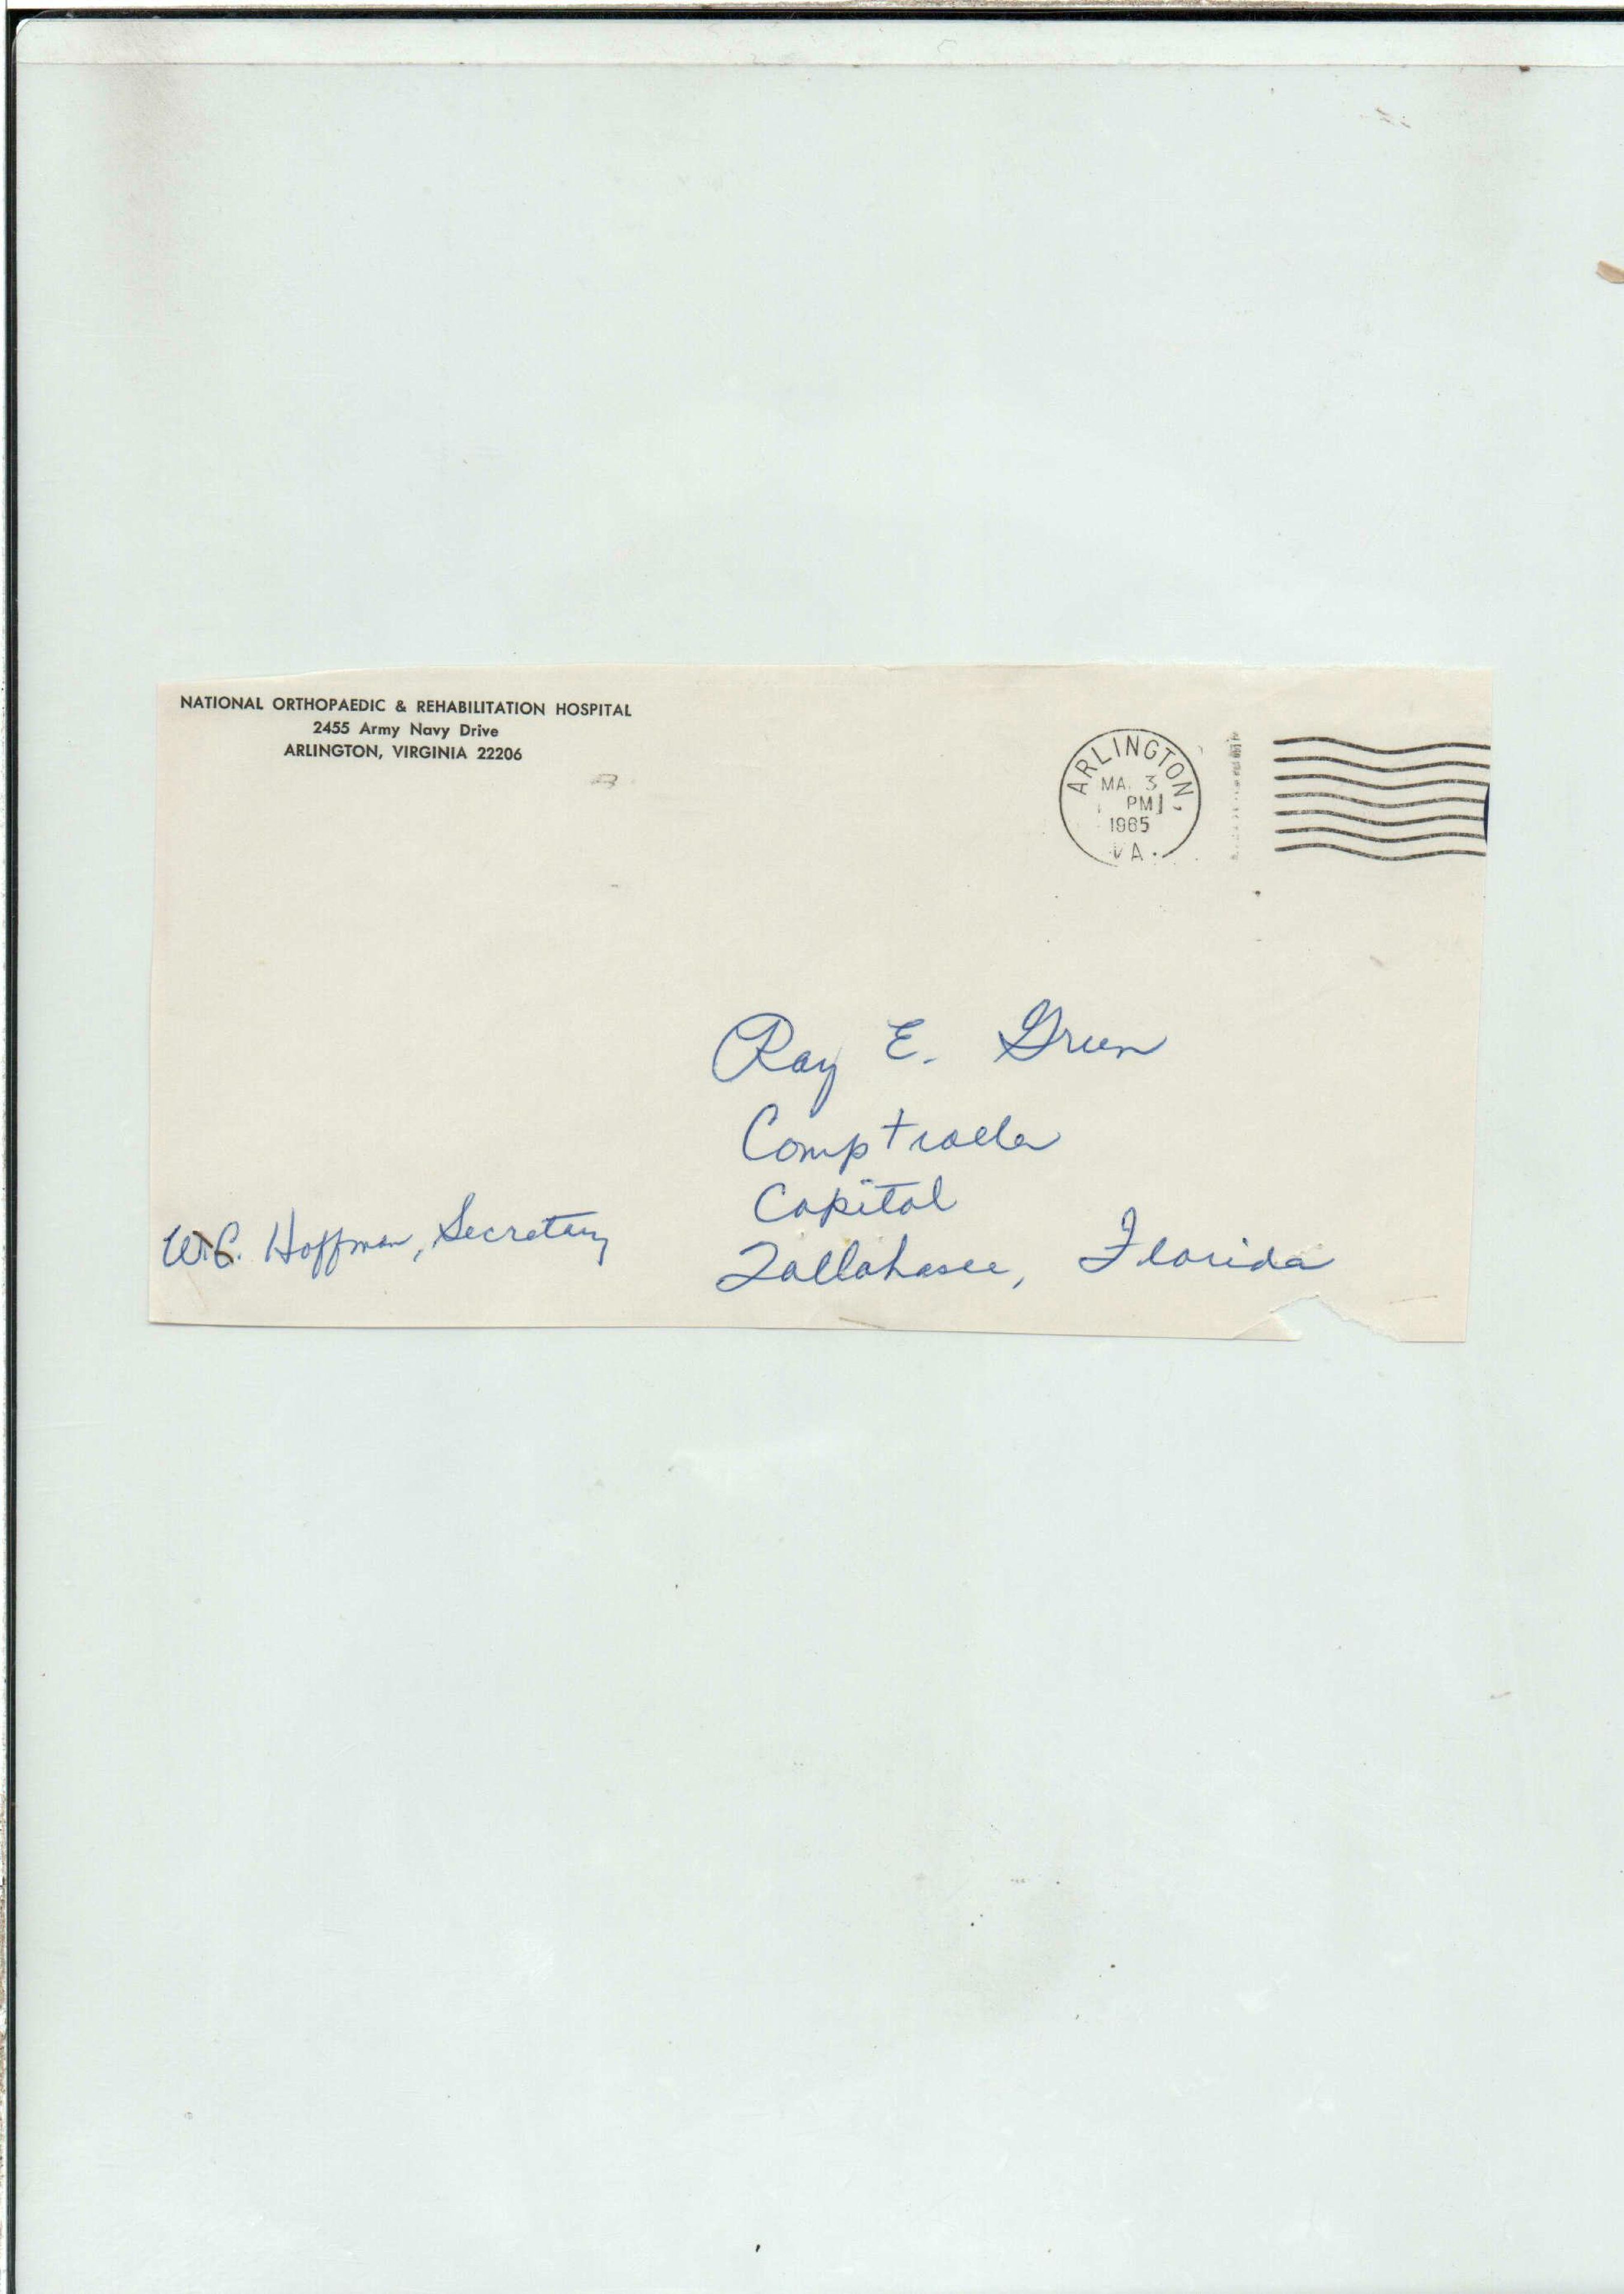 NATIONAL ORTHOPAEDIC & REHABILITATION HOSPITAL
2455 Army Navy Drive
ARLINGTON, VIRGINIA 22206
ARLINGTON,
MA 3
PM
1965
VA.
Ray E. Green
Comptroller
Capital
Tallahasee, Florida
W.C. Hoffman, Secretary